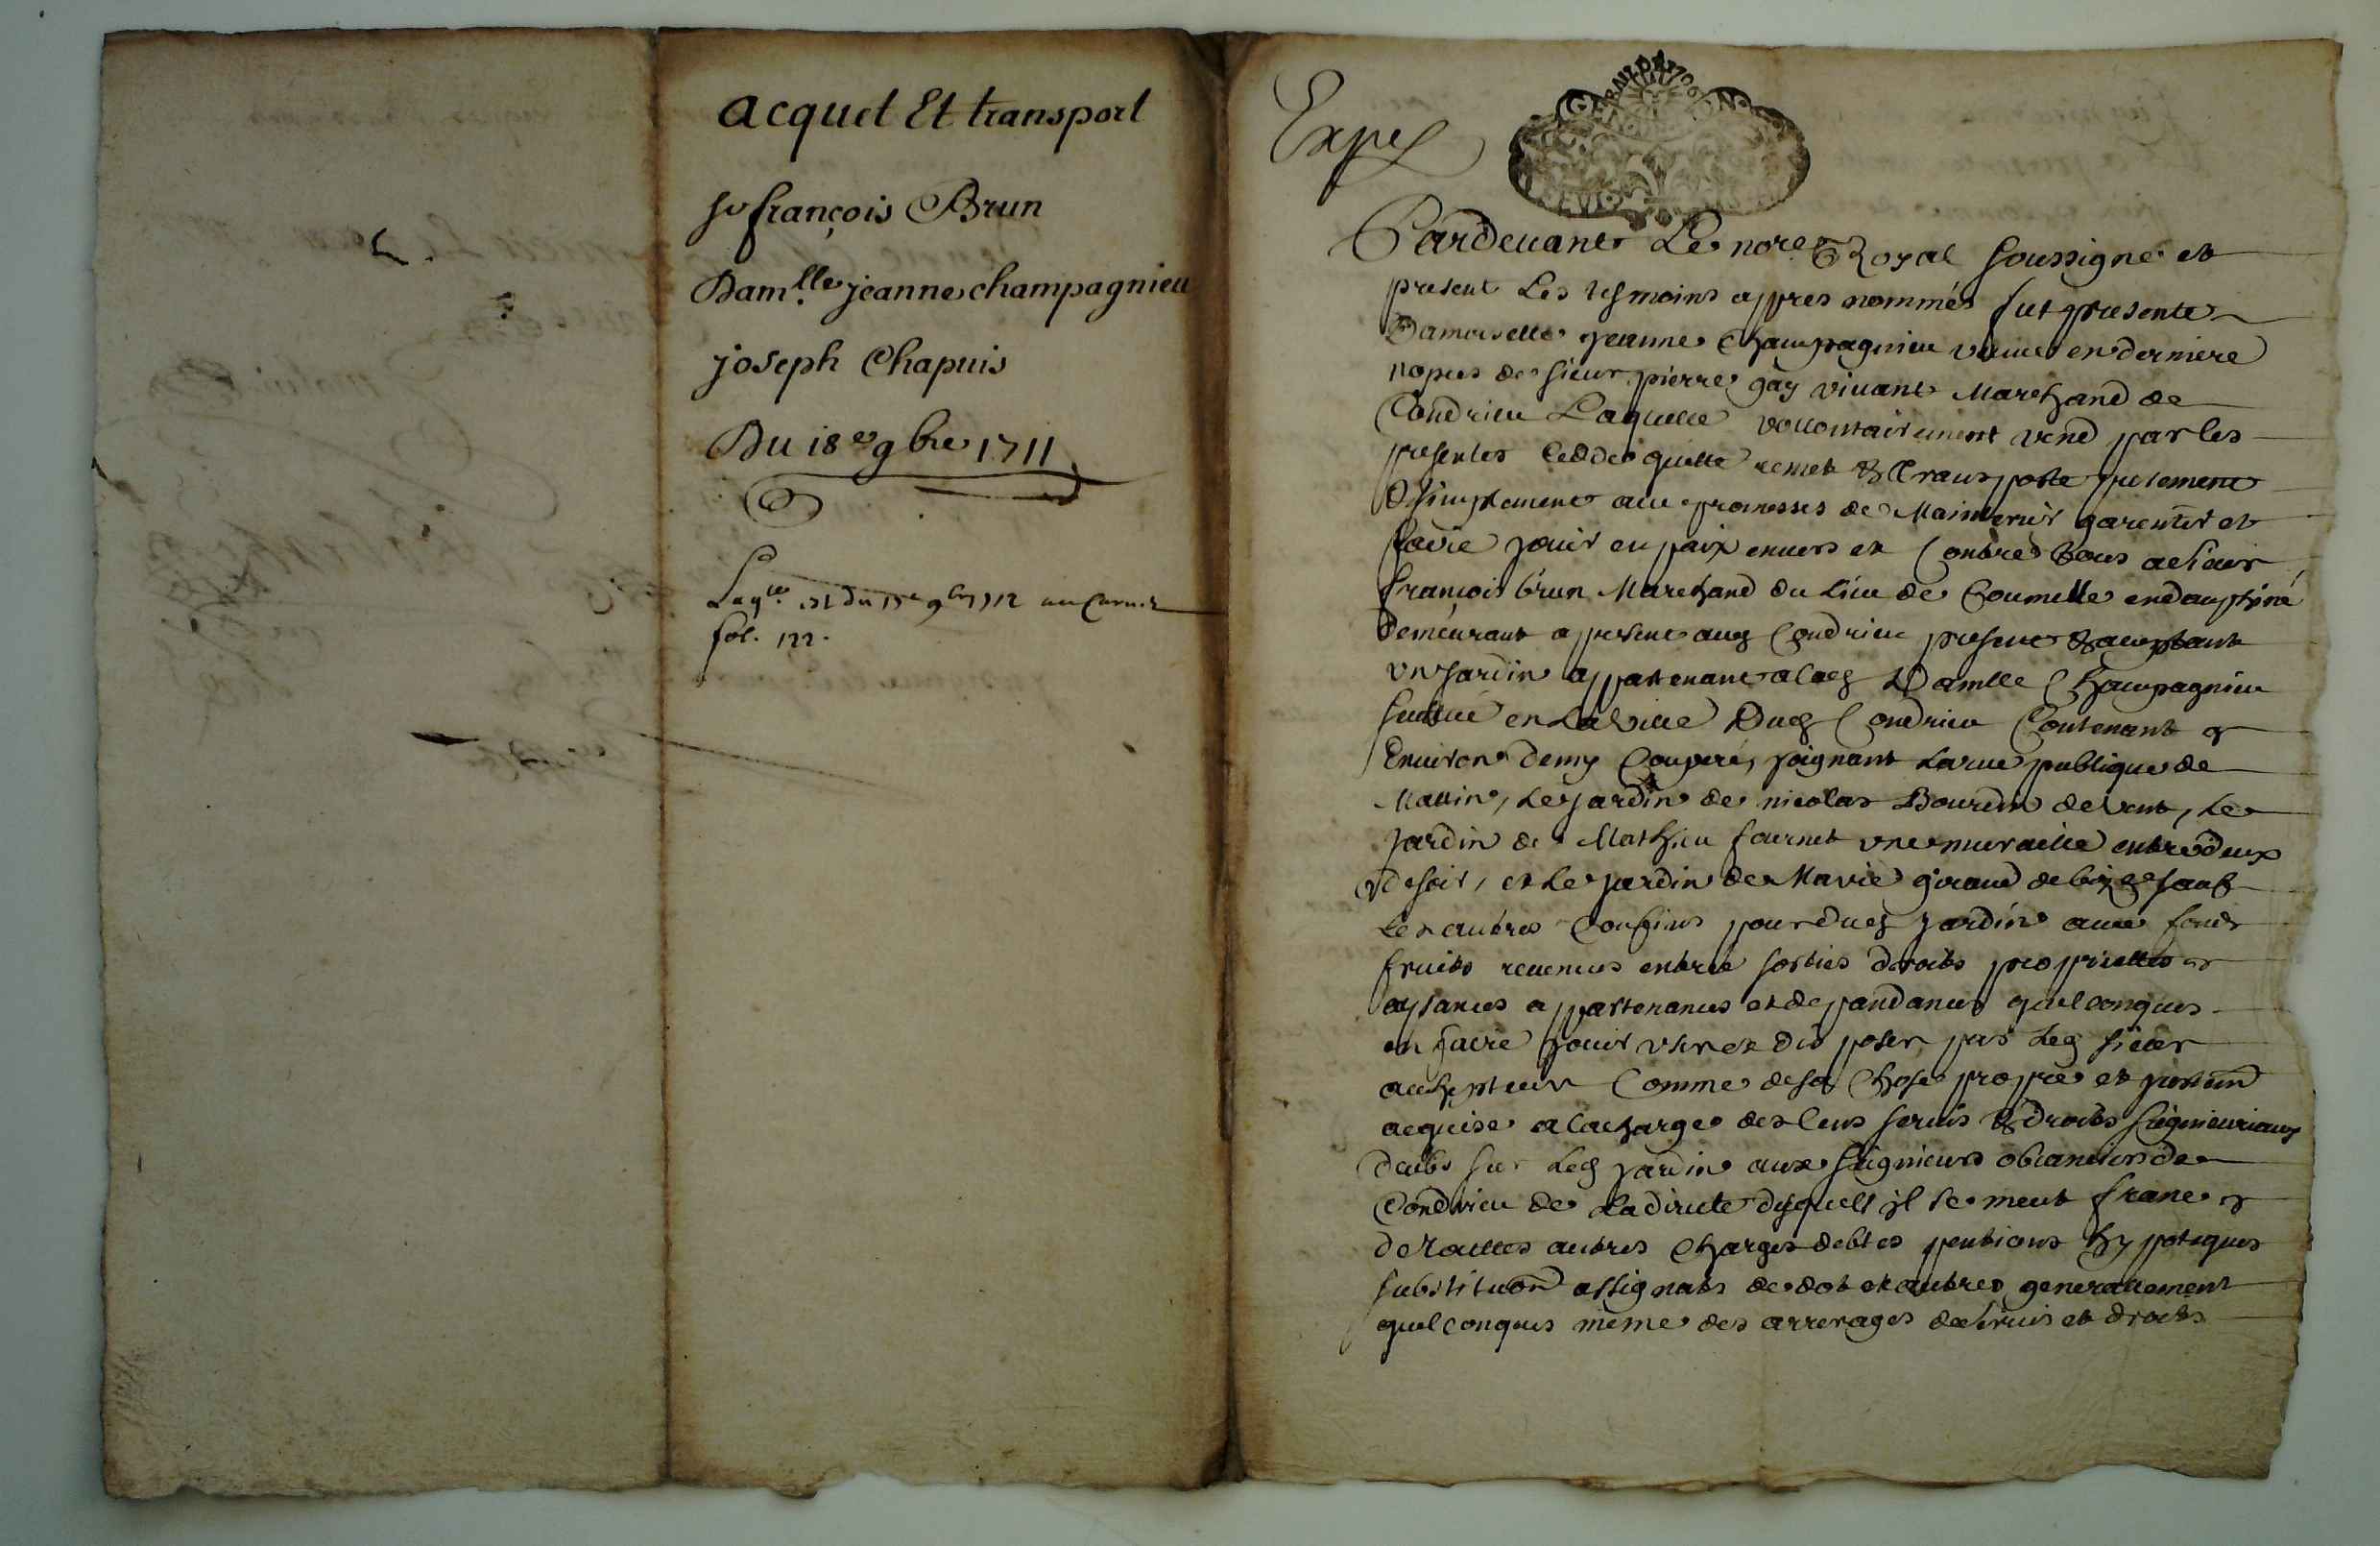 acquet Et transport
sr françois Brun
Dam.lle jeanne champagnieu
joseph Chapuis
Du 18e 9bre 1711
fol. 122.
Expes
Pardeuant Le nore Royal soussigne et
present Les tesmoins appres nommés fut presente
Damoiselle jeanne Champagnieu veuue en derniere
nopces de sieur pierre gay viuant Marchand de
Condrieu Laquelle vollontairement vend par les
presentes cedde quitte remet & transporte purement
& simplement auec promesses de Maintenir garentir et
faire jouir en paix enuers et Contre tous a sieur
françois brun Marchand du Lieu de en dauphiné
demeurant a present aud Condrieu present & acceptant
vn jardin appartenant a lad Damlle Champagnieu
scittué en La Ville Dud Condrieu Contenant
Enuiron demy Couperé, joignant La rue publique de
Matin, Le jardin de nicolas Bourdin de vent, Le
jardin de Mathieu fournet vne muraille entre deux
de soir, et Le jardin de Marie giraud de bize sauf
Les autres Confins pour dud jardin auec fonds
fruits reuenus entrée sorties droits proprietes
aysances appartenances et dependances quelconques
en faire jouir vser et disposer par Led sieur
achepteur Comme de sa Chose propre et
acquise a la charge des Cens seruis & droits seigneuriaux
deubs sur Led jardin aux seigneurs de
Condrieu de La directe desquels il se meut franc
de toutes autres Charges debtes pentions hypoteques
substituon assignats de dot et autres generallement
quelconques même des arrerages de seruis et droits